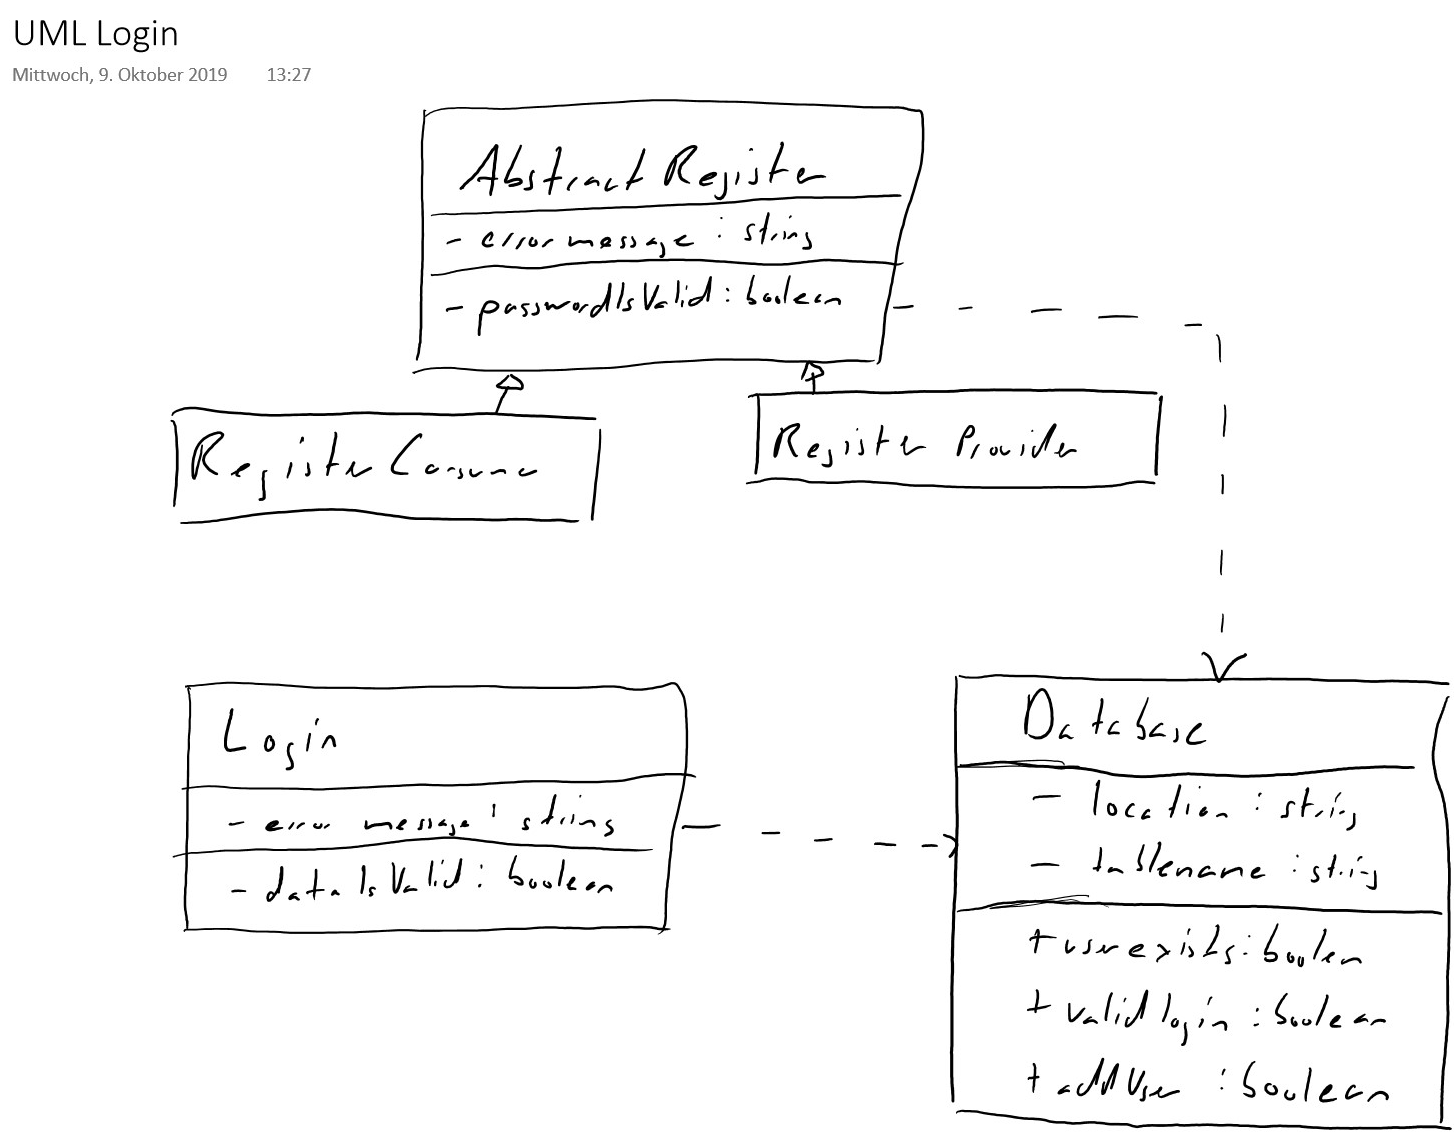 UML Login
Mittwoch, 9. Oktober 2019 13:27
Abstract Register
- errormessage : string
- passwordIsValid : boolean
Register Consumer
Register Provider
Login
- error message : string
- data Is Valid : boolean
Database
- location : string
- tablename : string
+ userexists : boolen
+ valid login : boolean
+ addUser : boolean